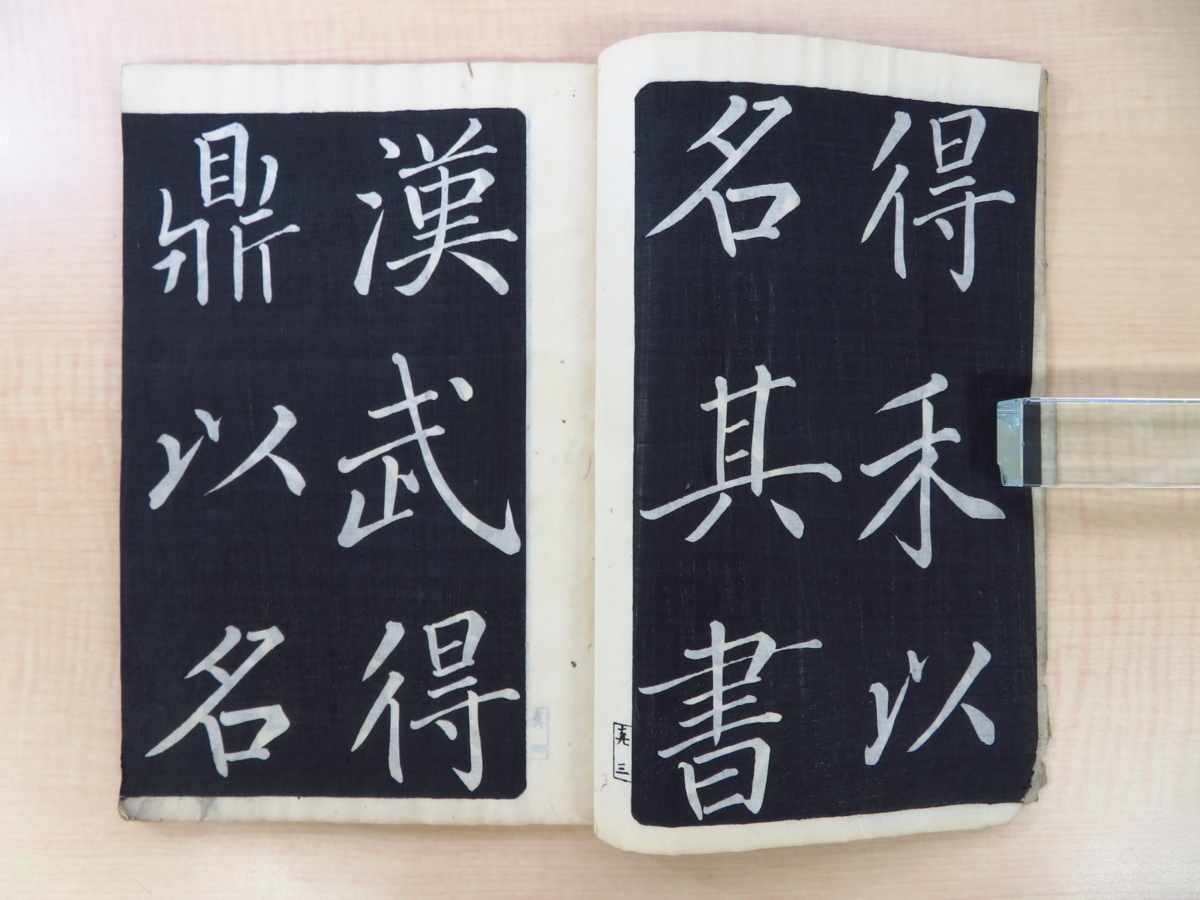 得禾以
名其書
漢武得
鼎以名
真三